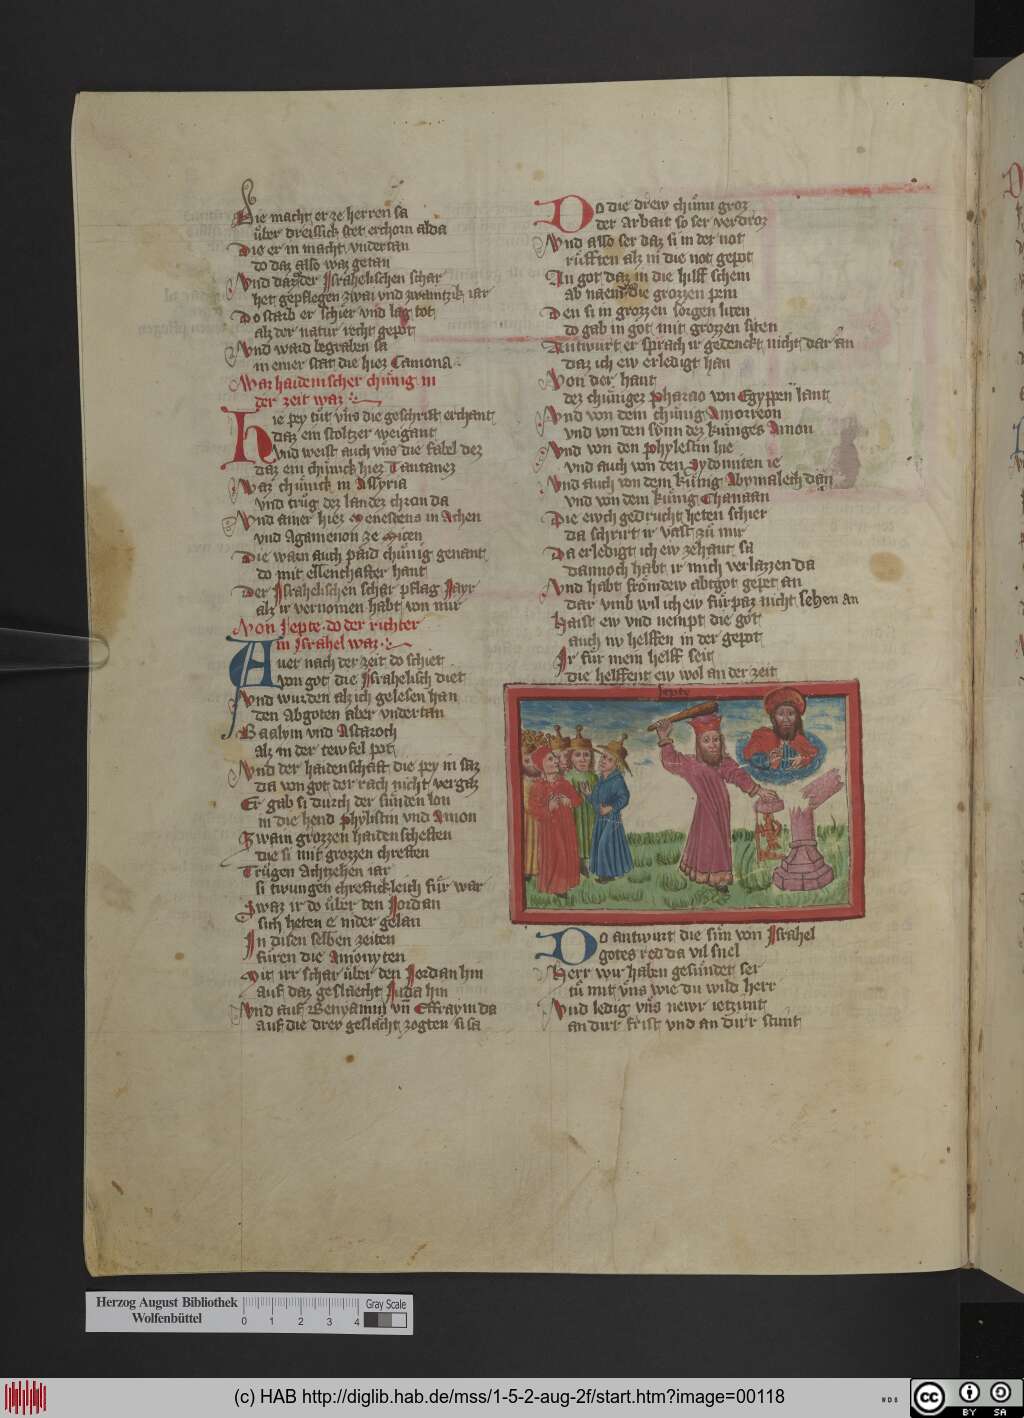 Die macht er ze herren sa
über dreissick stet erchorn alda
Die er in macht vndertan
do daz also waz getan
Vnd daz der Israhelischen schar
het gepflegen zwai vnd zwantzik iar
Do starb er schier vnd lag tot
alz der natur recht gepot
Vnd ward begraben sa
in einer stat die hiez Camona
Waz haidenischer chünig in
der zeit waz
Hie pey tüt vns die geschrift erchant
daz ein stoltzer weigant
Vnd weist auch vns die fabel dez
daz ein chünick hiez Tantanez
Waz chünick in Assyria
vnd trüg dez landez chron da
Vnd ainer hiez Menestens in Achen
vnd Agamenon ze Micen
Die warn auch paid chünig genant
do mit ellenthafter hant
Der Israhelischen schar pflag Jayr
alz ir vernomen habt von mir
Von Jepte do der richter
in Israhel waz
Auer nach der zeit do schiet
von got die Israhelisch diet
Vnd wurden alz ich gelesen han
den Abgoten aber vndertan
Baalym vnd Astaroch
alz in der tewfel pot
Vnd der haidenschaft die pey in saz
da von got der rach nicht vergaz
Er gab si durch der sünden lon
in die hend Phylistin vnd Amon
Zwain grozzen haidenscheften
die si mit grozzen chreften
Trügen Achtzehen iar
si twungen chreftickleich für war
Swaz ir do über den Jordan
sich heten e nider gelan
In disen selben zeiten
füren die Amonyten
Mit irr schar über den Jordan hin
auf daz geslaecht Juda hin
Vnd auf Benyamin vn Effraym da
auf die drey geslächt zogten si sa
Do die drew chünn groz
der Arbait so ser verdroz
Vnd also ser daz si in der not
rüfften alz in die not gepot
An got daz in die hilff schein
ab naem die grozzen pein
Den si in grozzen sorgen liten
do gab in got mit grozzen siten
Antwurt er sprach ir gedenckt nicht dar an
daz ich ew erledigt han
Von der hant
dez chünigez Pharao von Egyppen lant
Vnd von dem chünig Amorreon
vnd von den sünn dez küniges Amon
Vnd von den Phylestin hie
vnd auch von den Sydoniten ie
Vnd auch von dem künig Abymalech dan
vnd von dem künig Chanaan
Die ewch gedrucht heten schier
da schrirt ir vast zü mir
Da erledigt ich ew zehant sa
dannoch habt ir mich verlazzen da
Vnd habt frömdew abtgot gepet an
dar vmb wil ich ew fürpaz nicht sehen an
Haist ew vnd nempt die got
auch nv helffen in der gepot
Ir für mein helff seit
die helffent ew wol an der zeit
Jepte
Do antwurt die sün von Israhel
gotes red da vil snel
Herr wir haben gesündet ser
tü mit vns wie du wild herr
Vnd ledig vns newr ietzunt
an dirr frist vnd an dirr stunt
Herzog August Bibliothek
Wolfenbüttel
0 1 2 3 4
Gray Scale
(c) HAB http://diglib.hab.de/mss/1-5-2-aug-2f/start.htm?image=00118
cc BY SA